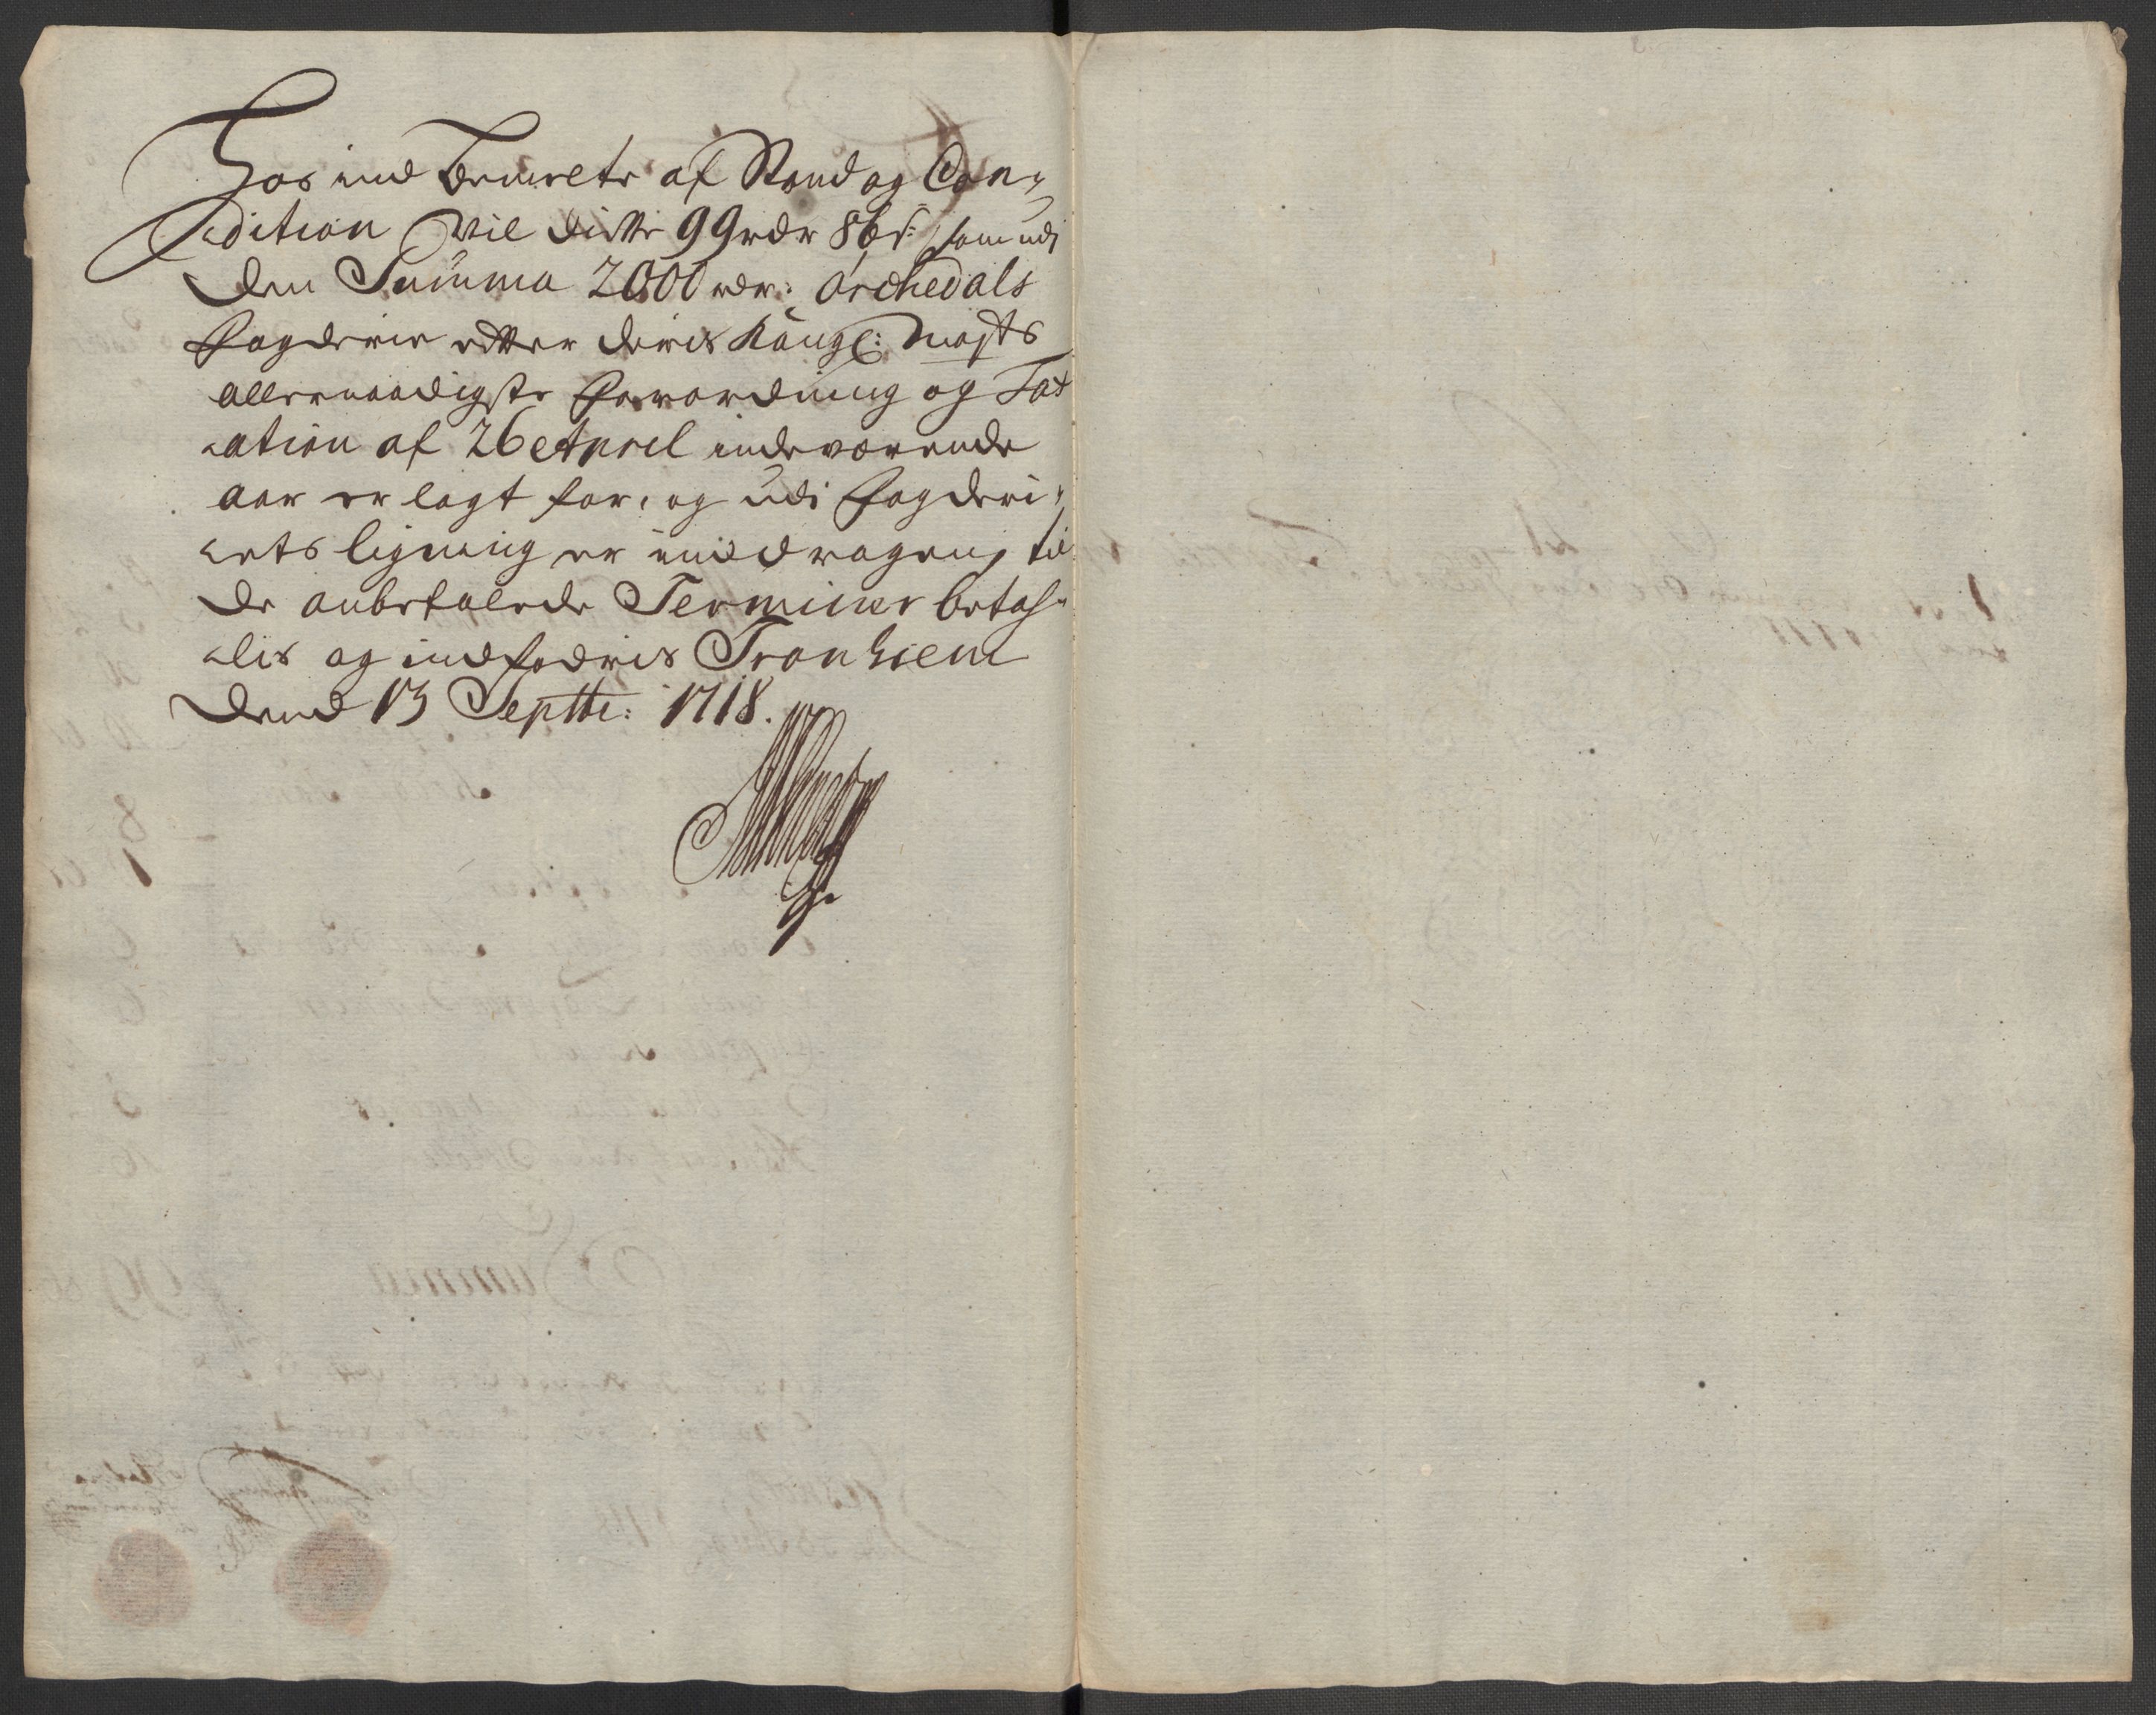 Hos ind Bemelte af Stand og Con-
dition vil dette 99 rdr 86 s: som udi
den Summa 2000 rdr: Orchedals
Fogderie efter deris Kongl: Mayts
allernaadigste Forordning og Tax
ation af 26 Aprel indeværende
aar er lagt for, og udi Fogderi-
ets ligning er inddragen, til
de anbefalede Terminer betah-
lis og indfodris Tronhiem
dend 13 Septbr: 1718.